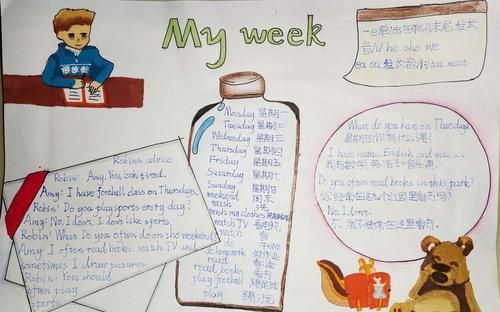 My week
一e单独在单词末尾发长
音/i:/ he she we
ea ee 发长音/i:/ tea meat
Monday 星期一
Tuesday 星期二
Wednesday 星期三
Thursday 星期四
Friday 星期五
Saturday 星期六
Sunday 星期日
weekend 周末
wash 洗
wash my clothes
watch
do
do homework 做作业
read 看
read books 看书
play football 踢足球
play 踢;玩
Robin's advice
Robin: Amy. You look tired.
Amy: I have football class on Thursdays.
Robin: Do you play sports every day?
Amy: No. I don't. I don't like sports.
Robin: What do you often do on the weekend?
Amy: I often read books. watch TV and
sometimes I draw pictures.
Robin: You should
often play
sports.
What do you have on Thursdays?
星期四你们有什么课?
I have math, English and music.
我有数学、英语和音乐课。
Do you often read books in this park?
你经常在这个公园里看书吗?
No, I don't.
不,我不经常在这里看书。